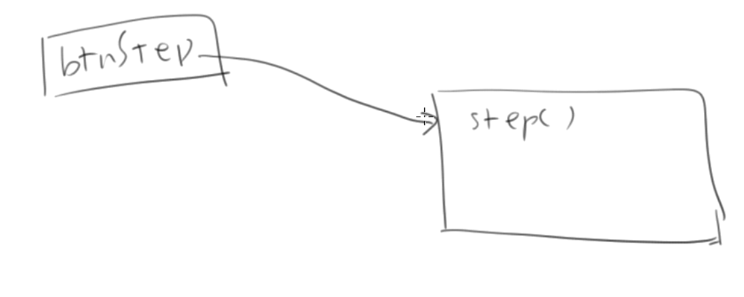 btnStep
step()